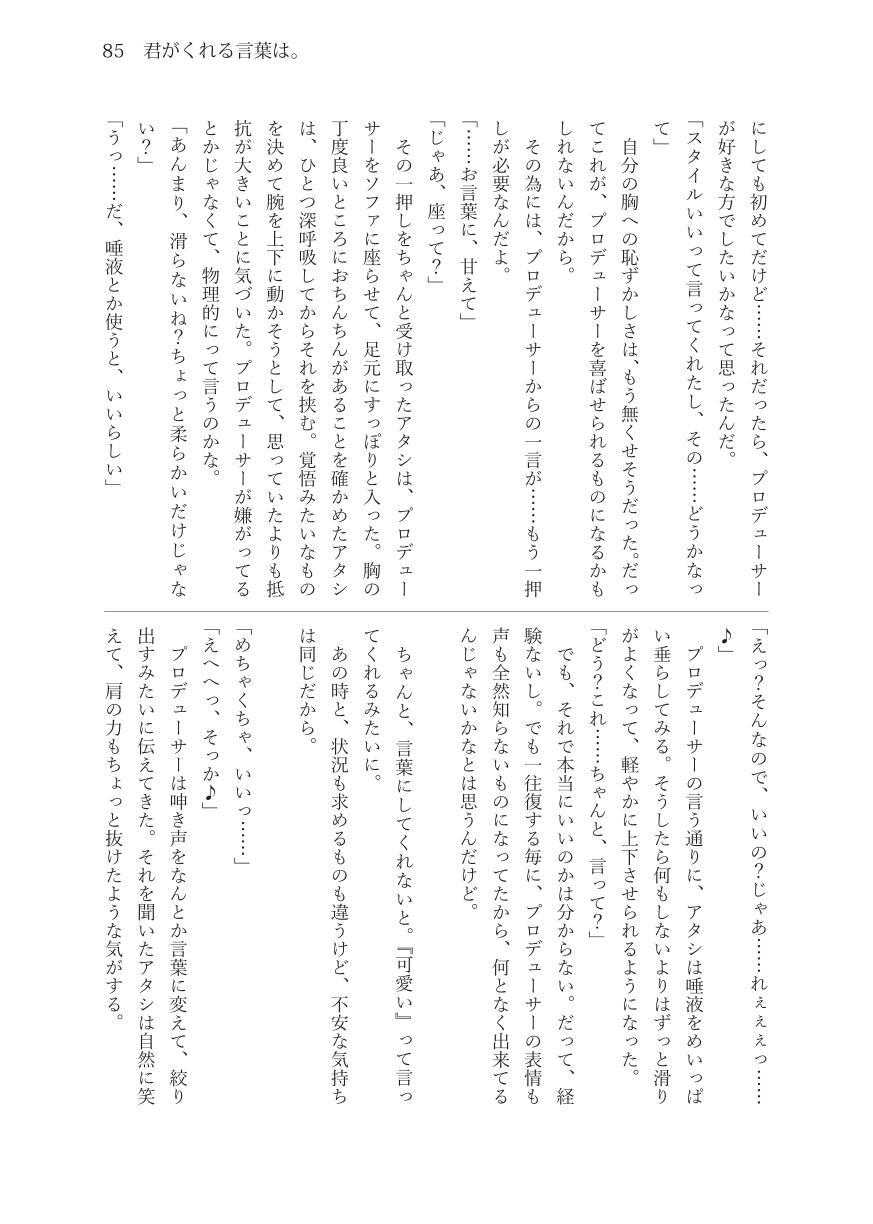 85　君がくれる言葉は。
にしても初めてだけど……それだったら、プロデューサー
が好きな方でしたいかなって思ったんだ。
「スタイルいいって言ってくれたし、その……どうかなっ
て」
　自分の胸への恥ずかしさは、もう無くせそうだった。だっ
てこれが、プロデューサーを喜ばせられるものになるかも
しれないんだから。
　その為には、プロデューサーからの一言が……もう一押
しが必要なんだよ。
「……お言葉に、甘えて」
「じゃあ、座って？」
　その一押しをちゃんと受け取ったアタシは、プロデュー
サーをソファに座らせて、足元にすっぽりと入った。胸の
丁度良いところにおちんちんがあることを確かめたアタシ
は、ひとつ深呼吸してからそれを挟む。覚悟みたいなもの
を決めて腕を上下に動かそうとして、思っていたよりも抵
抗が大きいことに気づいた。プロデューサーが嫌がってる
とかじゃなくて、物理的にって言うのかな。
「あんまり、滑らないね？ちょっと柔らかいだけじゃな
い？」
「うっ……だ、唾液とか使うと、いいらしい」
「えっ？そんなので、いいの？じゃあ……れぇぇぇっ……
♪」
　プロデューサーの言う通りに、アタシは唾液をめいっぱ
い垂らしてみる。そうしたら何もしないよりはずっと滑り
がよくなって、軽やかに上下させられるようになった。
「どう？これ……ちゃんと、言って？」
　でも、それで本当にいいのかは分からない。だって、経
験ないし。でも一往復する毎に、プロデューサーの表情も
声も全然知らないものになってたから、何となく出来てる
んじゃないかなとは思うんだけど。
　ちゃんと、言葉にしてくれないと。『可愛い』って言っ
てくれるみたいに。
　あの時と、状況も求めるものも違うけど、不安な気持ち
は同じだから。
「めちゃくちゃ、いいっ……」
「えへへっ、そっか♪」
　プロデューサーは呻き声をなんとか言葉に変えて、絞り
出すみたいに伝えてきた。それを聞いたアタシは自然に笑
えて、肩の力もちょっと抜けたような気がする。